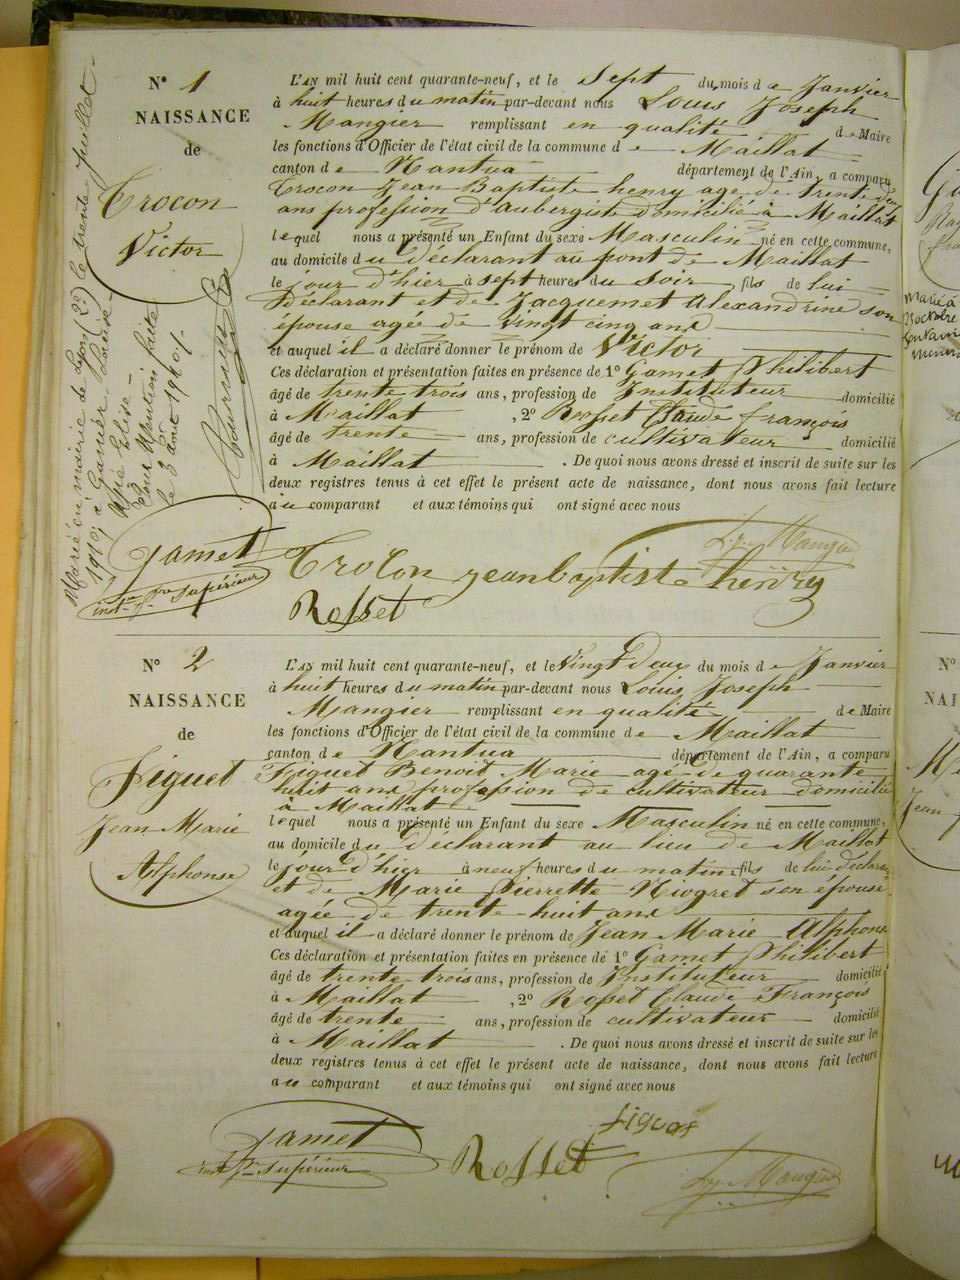 N° 1
NAISSANCE
de
Crocon
Victor
Marié en mairie de Lyon (2e) le trente juillet
1919 à Garnier Louise
Élise
Pour Mention faite
le 3 août 1940
L'AN mil huit cent quarante-neuf, et le Sept du mois de Janvier
à huit heures du matin par-devant nous Louis Joseph
Mangier remplissant en qualité de Maire
les fonctions d'Officier de l'état civil de la commune de Maillat
canton de Nantua département de l'Ain, a comparu
Crocon Jean Baptiste henry age de trente deux
ans profession d'aubergiste domicilié à Maillat
lequel nous a présenté un Enfant du sexe Masculin né en cette commune,
au domicile du déclarant au pont de Maillat
le jour d'hier à sept heures du soir fils de lui
Déclarant et de Jacquemet Alexandrine son
épouse agée de vingt cinq ans
et auquel il a déclaré donner le prénom de Victor
Ces déclaration et présentation faites en présence de 1° Gamet Philibert
âgé de trente trois ans, profession de Instituteur domicilié
à Maillat , 2° Rosset Claude françois
âgé de trente ans, profession de cultivateur domicilié
à Maillat . De quoi nous avons dressé et inscrit de suite sur les
deux registres tenus à cet effet le présent acte de naissance, dont nous avons fait lecture
au comparant et aux témoins qui ont signé avec nous
Gamet
Crocon jean baptiste henry
Rosset
N° 2
NAISSANCE
de
Figuet
Jean Marie
Alphonse
L'AN mil huit cent quarante-neuf, et le Vingt Deux du mois de Janvier
à huit heures du matin par-devant nous Louis Joseph
Mangier remplissant en qualité de Maire
les fonctions d'Officier de l'état civil de la commune de Maillat
canton de Nantua département de l'Ain, a comparu
Figuet Benoit Marie age de quarante
huit ans profession de cultivateur domicilié
à Maillat
lequel nous a présenté un Enfant du sexe Masculin né en cette commune,
au domicile du déclarant au lieu de Maillat
le jour d'hier à neuf heures du matin fils de lui déclarant
et de Marie Pierrette Niogret son épouse
agée de trente huit ans
et auquel il a déclaré donner le prénom de Jean Marie Alphonse
Ces déclaration et présentation faites en présence de 1° Gamet Philibert
âgé de trente trois ans, profession de Instituteur domicilié
à Maillat , 2° Rosset Claude François
âgé de trente ans, profession de cultivateur domicilié
à Maillat . De quoi nous avons dressé et inscrit de suite sur les
deux registres tenus à cet effet le présent acte de naissance, dont nous avons fait lecture
au comparant et aux témoins qui ont signé avec nous
Gamet
Rosset